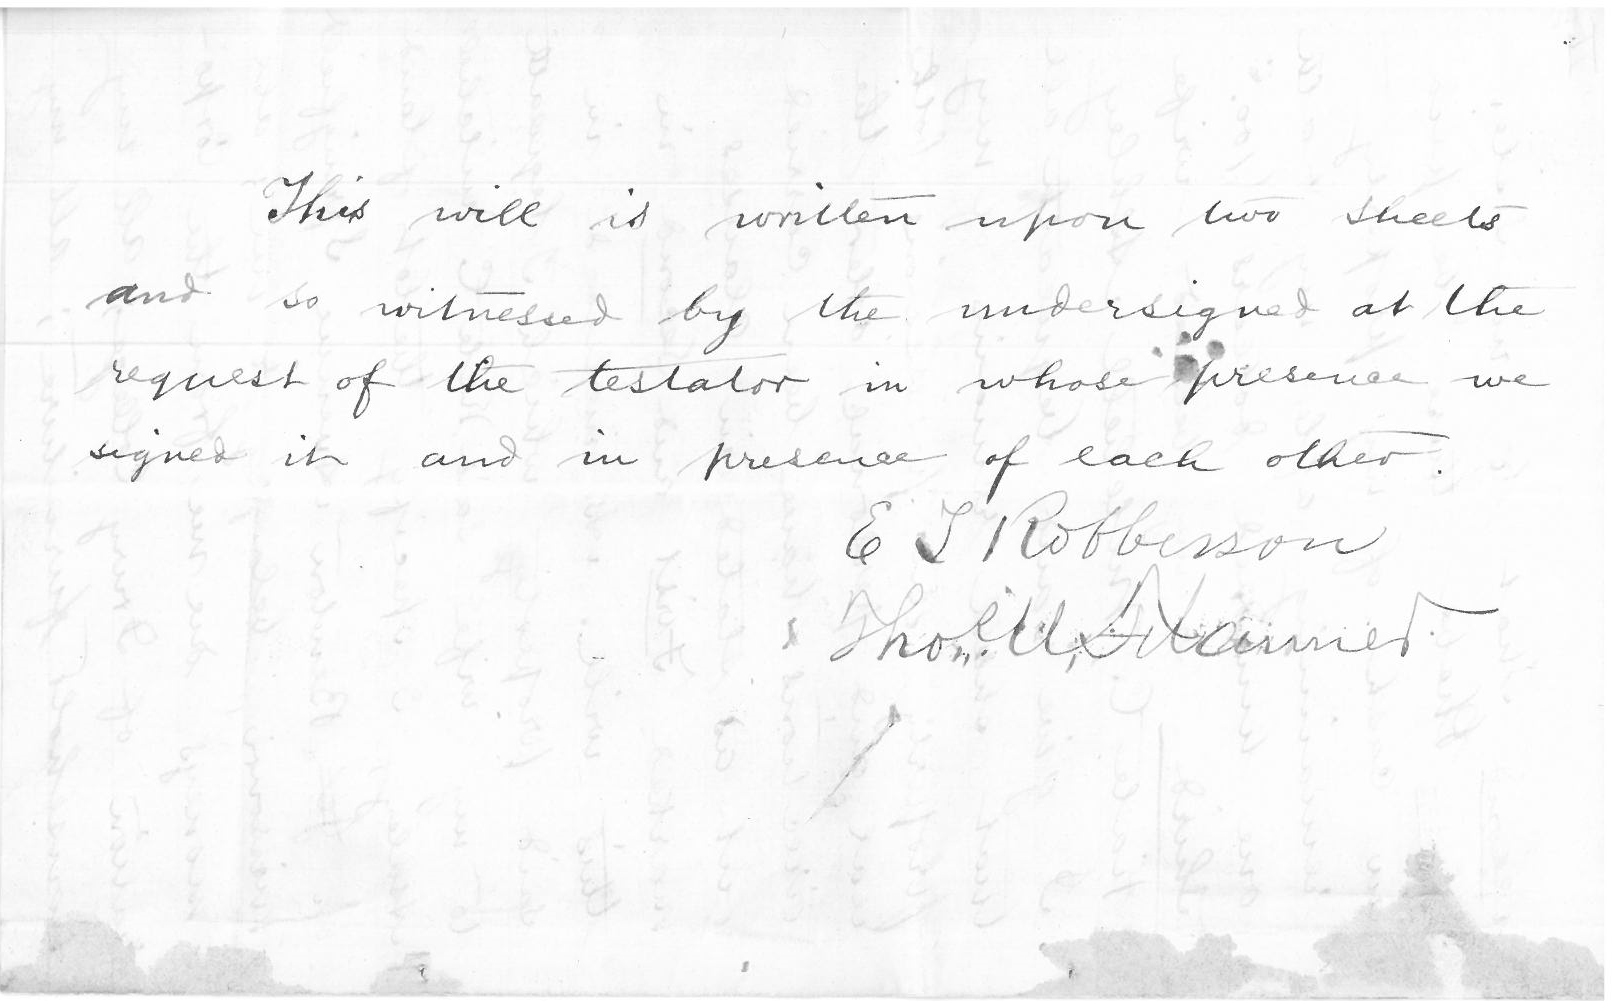 This will is written upon two sheets
and so witnessed by the undersigned at the
request of the testator in whose presence we
signed it and in presence of each other.
E T Robberson
Thos.